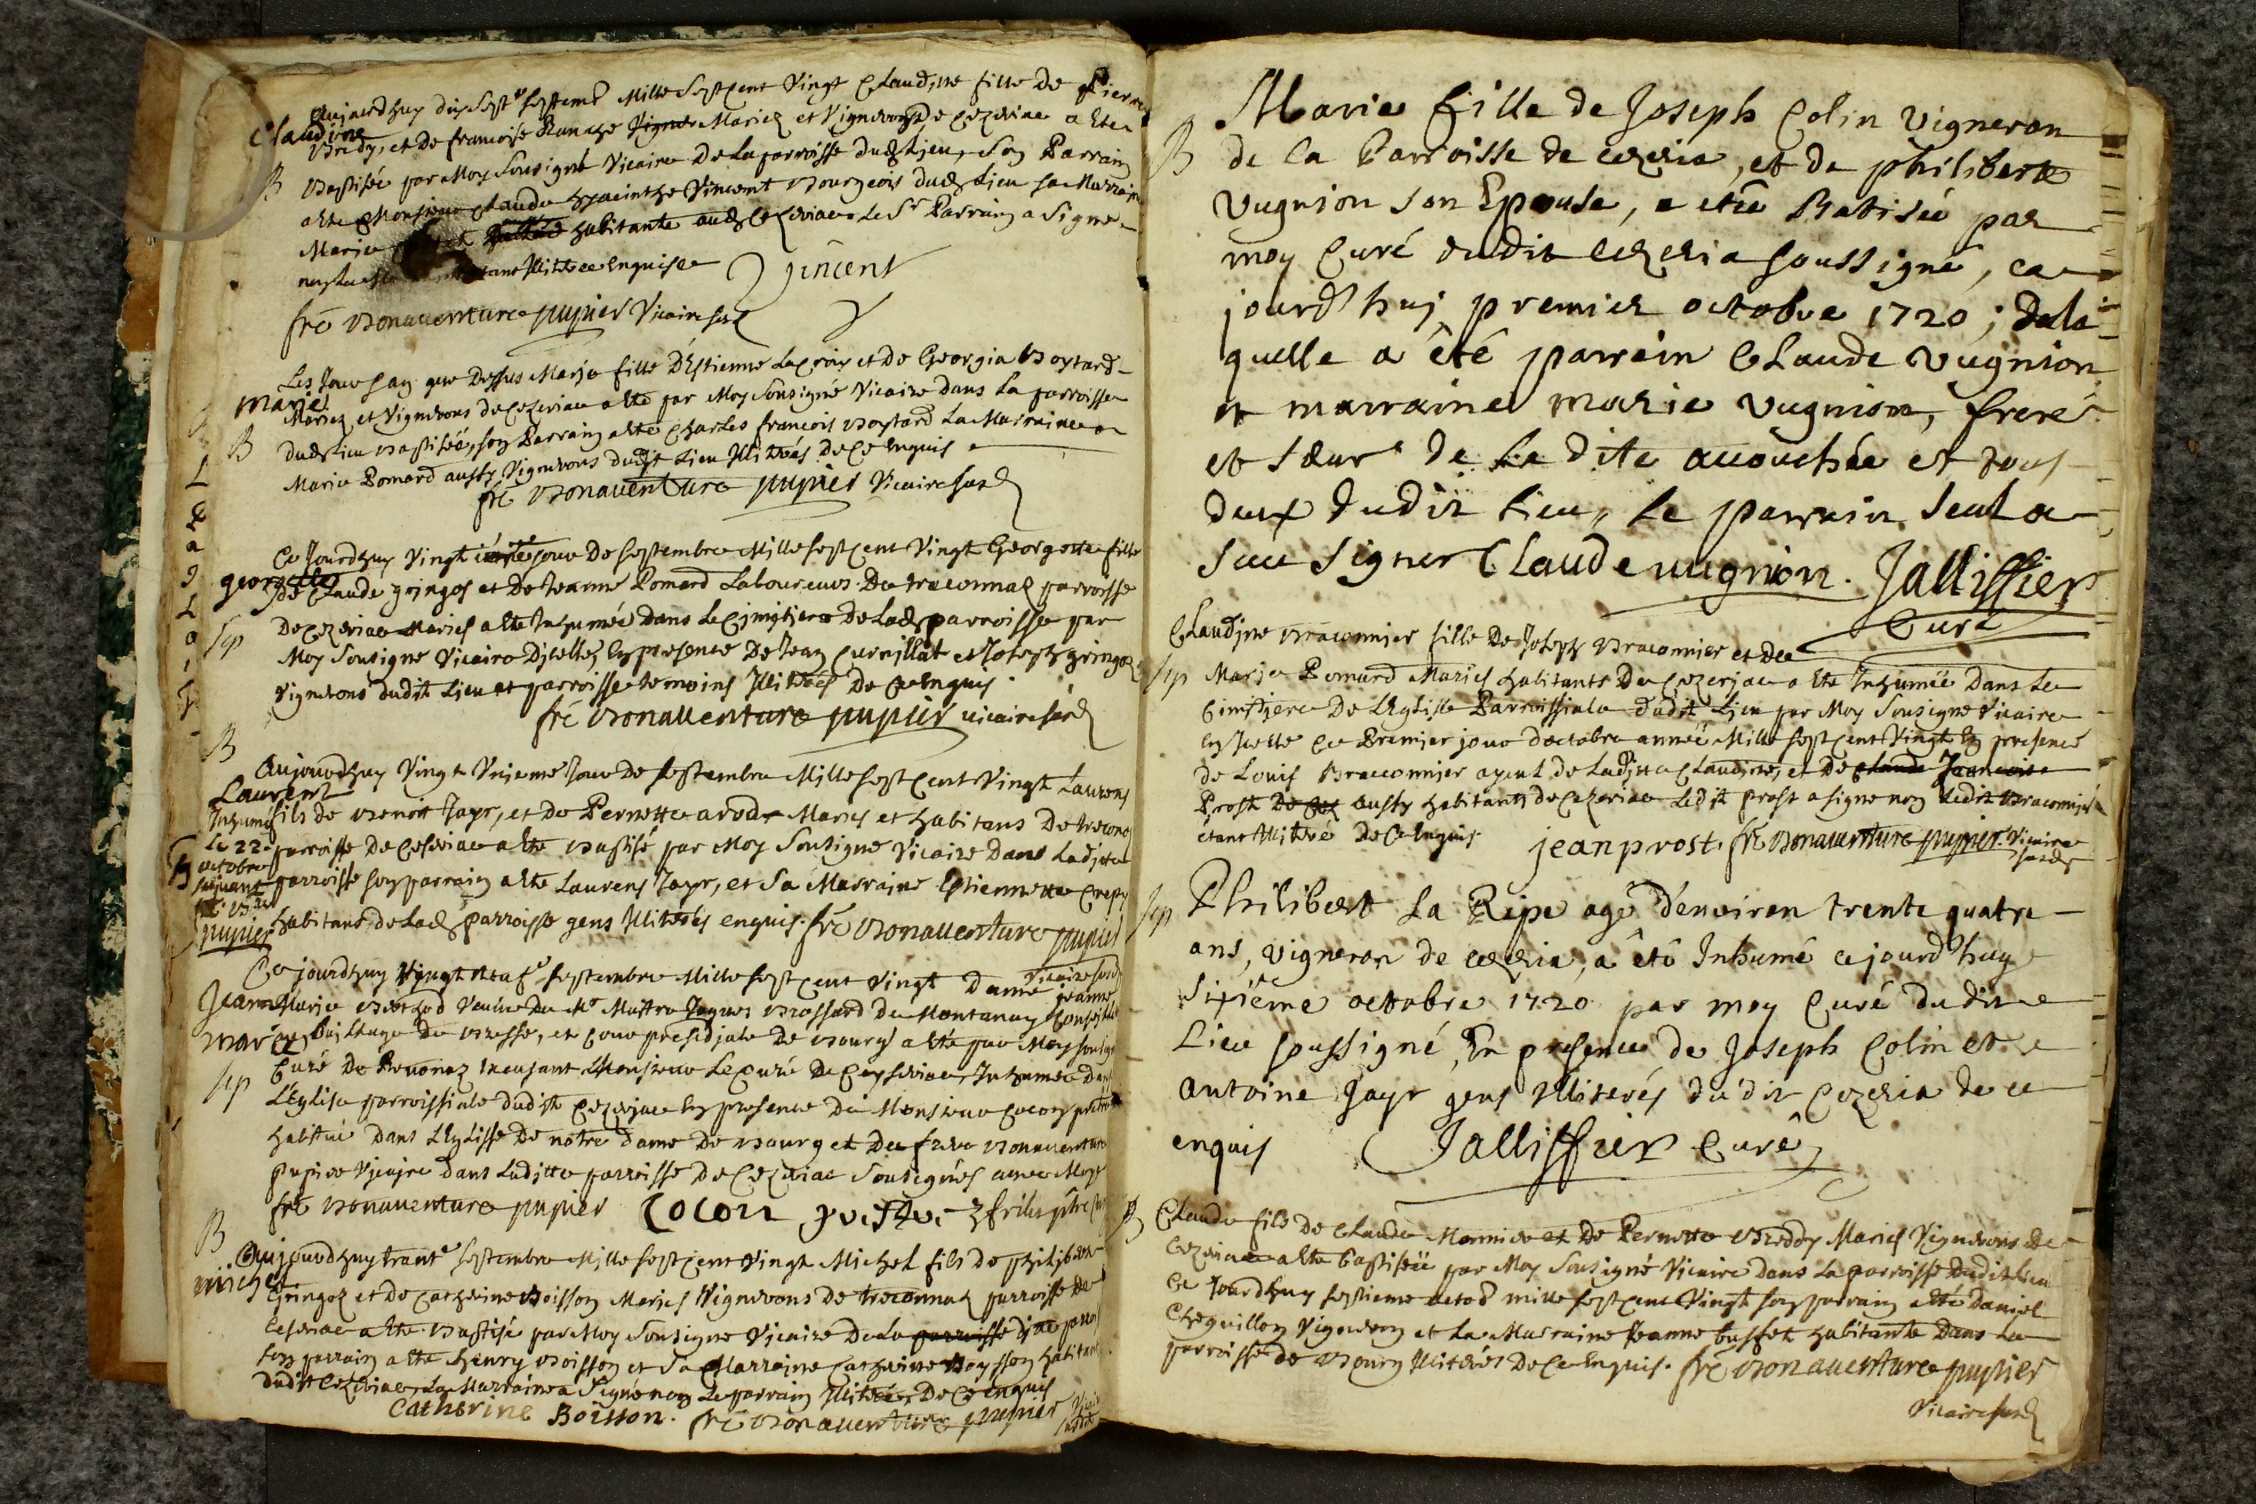 Aujourdhuy dix sept.e septemb Mille Sept Cent Vingt Claudine fille de Pierre
Claudine
Bredy, et De francoise Ranche Mariez et Vignerons De Cezeriac a Ete
B
Baptisée par Moy Sousigné Vicaire De La parroisse dud Lieu, Son Parrain
a ete Monsieur Claude hyacinthe Vincent Bourgeois dud Lieu sa Marraine
Marie habitante aud Cezeriac Le Sr Parrain a Signe
Enquise
Vincent
fre Bonaventure pupier Vicaire susd
Les Jour et an que Dessus Marie fille D'Estienne Lacroix et De Georgia Boytard
marie
Mariez et Vignerons De Cezeriac a Ete par Moy Sousigné Vicaire Dans La parroisse
B
dud Lieu Baptisée, son Parrain a Ete Charles francois Boytard La Marraine
Marie Pomard aussy Vignerons dudit Lieu Illiterés De Ce Enquis
fre Bonaventure pupier Vicaire susd
Ce Jourdhuy Vingtieme jour De septembre Mille sept Cent Vingt Georgette fille
georgette
De Claude gringoz et De Jeanne Pomard Laboureurs De treconnas parroisse
Sep
De Cezeriac Mariez a Ete Inhumée Dans Le Cimitiere De Lad parroisse par
Moy Sousigne Vicaire Djcelle, En presence De Jean Curnillat et Joseph gringoz
Vignerons dudit Lieu et parroisse temoins Illiterés De Ce Enquis
fre Bonaventure pupier vicaire susd
B
Aujourdhuy Vingt Unieme Jour De septembre Mille sept Cent Vingt Laurens
Laurent
fils de Benoit Jayr, et De Pernette arod Mariez et habitans De trecona
Inhumé
Le 22
octobre
suivant
pupier
parroisse De Cezeriac a Ete Baptisé par Moy Sousigne Vicaire Dans Laditte
B
parroisse son parrain a Ete Laurens Jayr, et Sa Marraine Estiennette Crepy
habitans de Lad parroisse gens Illiterés enquis. fre Bonaventure pupier
vicaire susd
Ce jourdhuy Vingt neuf.e septembre Mille sept cent Vingt Dame jeanne
Jeanne
Marie Berthod Veuve De Mr Maitre Jaques Brossard De Montanay Conseiller
marie
au Bailliage De Bresse, et Cour presidiale De Bourg a Ete par Moy sousigné
Sep
Curé De Revonaz Monsieur Le Curé De Ceyseriac, Inhumée Dans
L'Eglise parroissiale dudit Cezeriac En presence De Monsieur Cocon pretre
habitué Dans L'Eglisse De notre Dame De Bourg et De frere Bonaventure
Pupier Vicaire Dans Laditte parroisse De Cezeriac Sousignés avec Moy
fre Bonaventure pupier Cocon
B
Aujourdhuy trent.e Septembre Mille sept Cent Vingt Michel fils de philibert
michel
Gringoz et De Catherine Boisson Mariez Vignerons De treconnas parroisse De
Cezeriac a Ete Baptisé par Moy Sousigne Vicaire De La parroisse
son parrain a Ete Henry Boisson et Sa Marraine Catherine Boysson habitans
dudit Cezeriac, La Marraine a Signé non Le parrain Illiteré, De Ce Enquis
Catherine Boisson. fre Bonaventure pupier Vicaire
susdit
Marie fille de Joseph Colin vigneron
B
de la Parroisse de cezeria, et de philiberte
vugnion son Epouse, a eté Batisée par
moy Curé dudit cezeria soussigné, ce
jourd'huj premier octobre 1720; de la
quelle a êté parrain Claude vugnion
et marraine marie vugnion, freres
et sœur de La dite accouchée et tous
deux dudit Lieu, le parrain seul a
sceu signer Claude vugnion. Jallissier
Curé
Claudjne Braconnier fille De Joseph Braconnier et De
Sep
Marie Pomard Mariez habitants De Cezerjac a Ete Inhumée Dans Le
Cimitjere De L'Eglise Parroissiale dudit Ljeu par Moy Sousigne Vicaire
En Icelle Ce Premier jour d'octobre année Mille sept Cent Vingt En presence
de Louis Braconnier ayeul de Laditte Claudjne, et De Claude Francoise
Prost aussy habitants de Cezeriac Ledit prost a signe non Ledit Braconnier
etant Illiteré De Ce Enquis jean prost. fre Bonaventure pupier Vicaire
susd
Sep
Philibert La Ripe agé d'environ trente quatre
ans, vigneron de cezeria, a êté Inhumé cejourd'huy
sixiême octobre 1720 par moy Curé du dit
Lieu soussigné, En presence de Joseph Colin et
antoine Jayr gens Illiterés du dit Cezeria de ce
enquis Jallissier Curé
B
Claude fils De Claude Monnier et De Pernette Breddy Mariez Vignerons De
Cezeriac a Ete baptiséé par Moy Sousigné Vicaire Dans La parroisse Dudit Lieu
Ce Jourdhuy septieme octob mille sept Cent Vingt son parrain a Eté Daniel
Cheguillon Vigneron et La Marraine Jeanne buffet habitante Dans La
parroisse de Bourg Illiterés De Ce Enquis. fre Bonaventure pupier
Vicaire susd